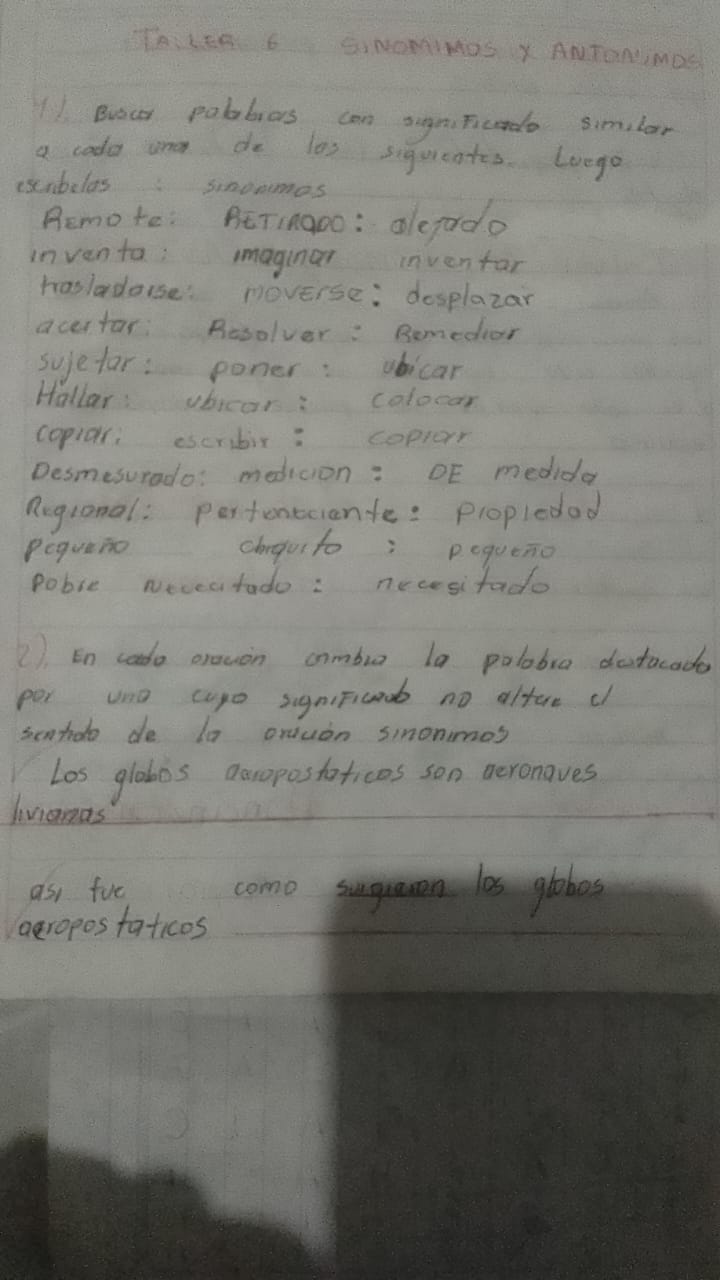 TALLER 6 SINOMIMOS Y ANTONIMOS
1). Buscar palabras con significado similar
a cada una de las siguientes. Luego
escribelas : sinonimos
Remote: RETIRADO: alejado
inventa: imaginar inventar
trasladarse: MOVERSE: desplazar
acertar: Resolver: Remedior
sujetar: poner: ubicar
Hallar: ubicar: colocar
copiar: escribir: copiar
Desmesurado: medicion: DE medida
Regional: pertenteciante: propiedad
pequeño chiquito: pequeño
pobre Nececitado: necesitado
2). En cada oración cambia la palabra destacada
por una cuyo significado no altere el
sentido de la oración sinonimos
Los globos aeropostaticos son aeronaves
livianas
asi fue como surgieron los globos
aeropostaticos